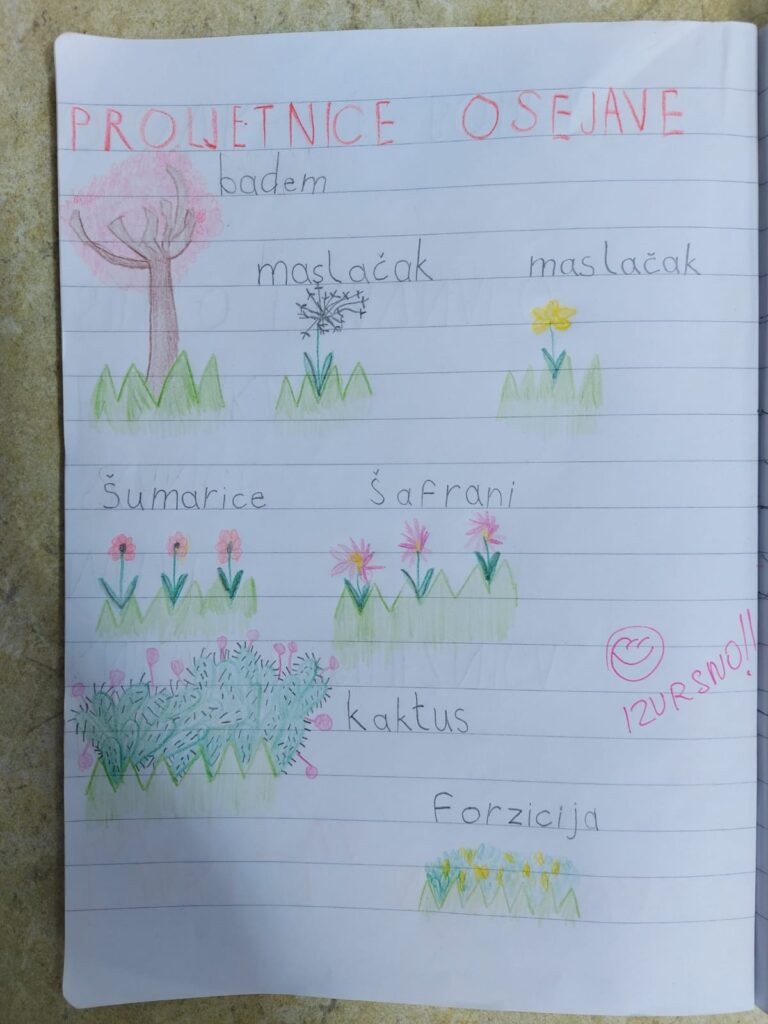 PROLJETNICE OSEJAVE
badem
maslačak maslačak
Šumarice Šafrani
kaktus
IZVRSNO!!
Forzicija